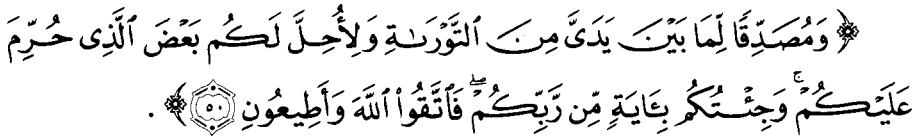 ﴿ وَمُصَدِّقًا لِّمَا بَيْنَ يَدَىَّ مِنَ ٱلتَّوْرَىٰةِ وَلِأُحِلَّ لَكُم بَعْضَ ٱلَّذِى حُرِّمَ
عَلَيْكُمْ ۚ وَجِئْتُكُم بِـَٔايَةٍ مِّن رَّبِّكُمْ ۖ فَٱتَّقُوا۟ ٱللَّهَ وَأَطِيعُونِ ٥٠ ﴾ .